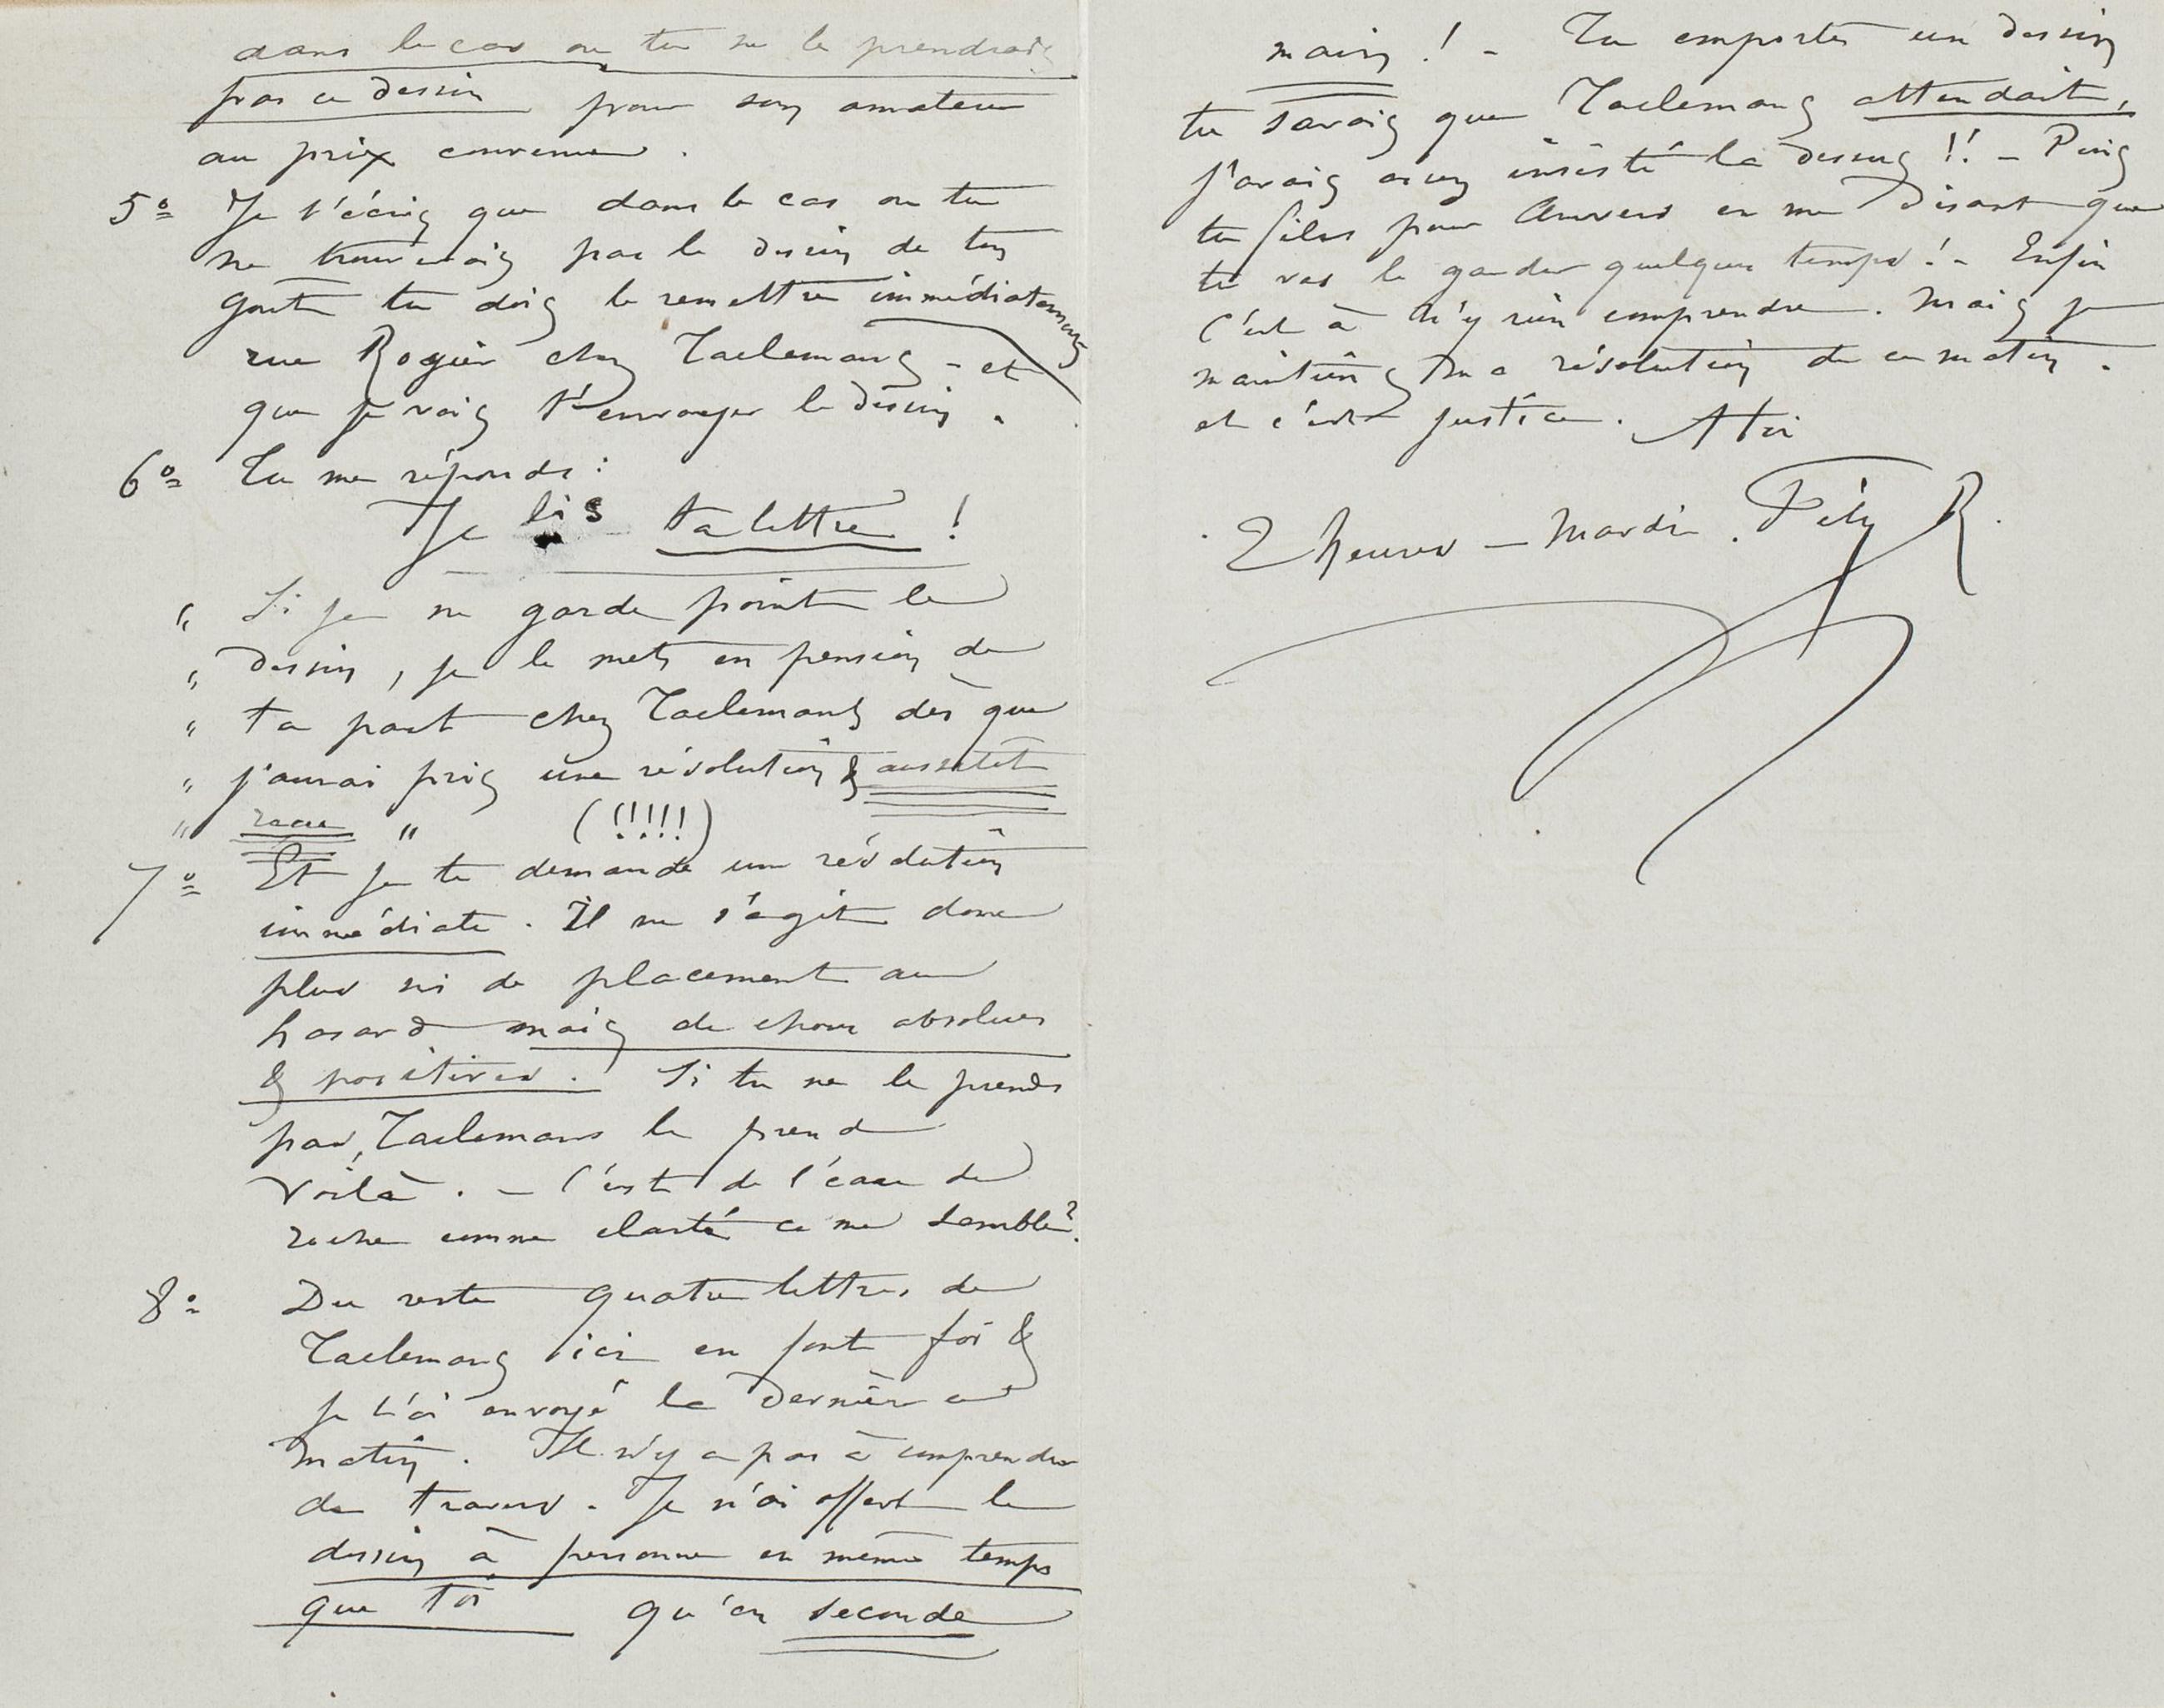 dans le cas ou tu ne le prendrais
pas ce dessin pour son amateur
au prix convenu.
5º Je t'écris que dans le cas ou tu
ne trouverais pas le dessin de ton
gout tu dois le remettre immédiatement
rue Rogier chez Taelemans - et
que je vais t'envoyer le dessin.
6º Tu me réponds :
Je lis ta lettre !
" Si je ne garde point le
" dessin, je le mets en pension de
" ta part chez Taelemans dès que
" j'aurai pris une résolution & aussitôt
" reçu " (!!!!)
7º Et je te demande une résolution
immédiate. Il ne s'agit donc
plus ni de placement au
hasard mais de choses absolues
& positives. Si tu ne le prends
pas, Taelemans le prend
voilà. - C'est de l'eau de
roche comme clarté ce me semble?
8º Du reste quatre lettres de
Taelemans ici en font foi &
je t'ai envoyé la dernière ce
matin. Il n'y a pas à comprendre
de travers. Je n'ai offert le
dessin à personne en même temps
que toi qu'en seconde
main ! - Tu emportes un dessin
tu savais que Taelemans attendait,
j'avais assez insisté là dessus !! - Puis
tu files pour Anvers en me disant que
tu vas le garder quelques temps ! - Enfin
c'est à n'y rien comprendre. Mais je
maintiens ma résolution de ce matin.
et c'est justice. A toi
2 heures - Mardi. Fély R.